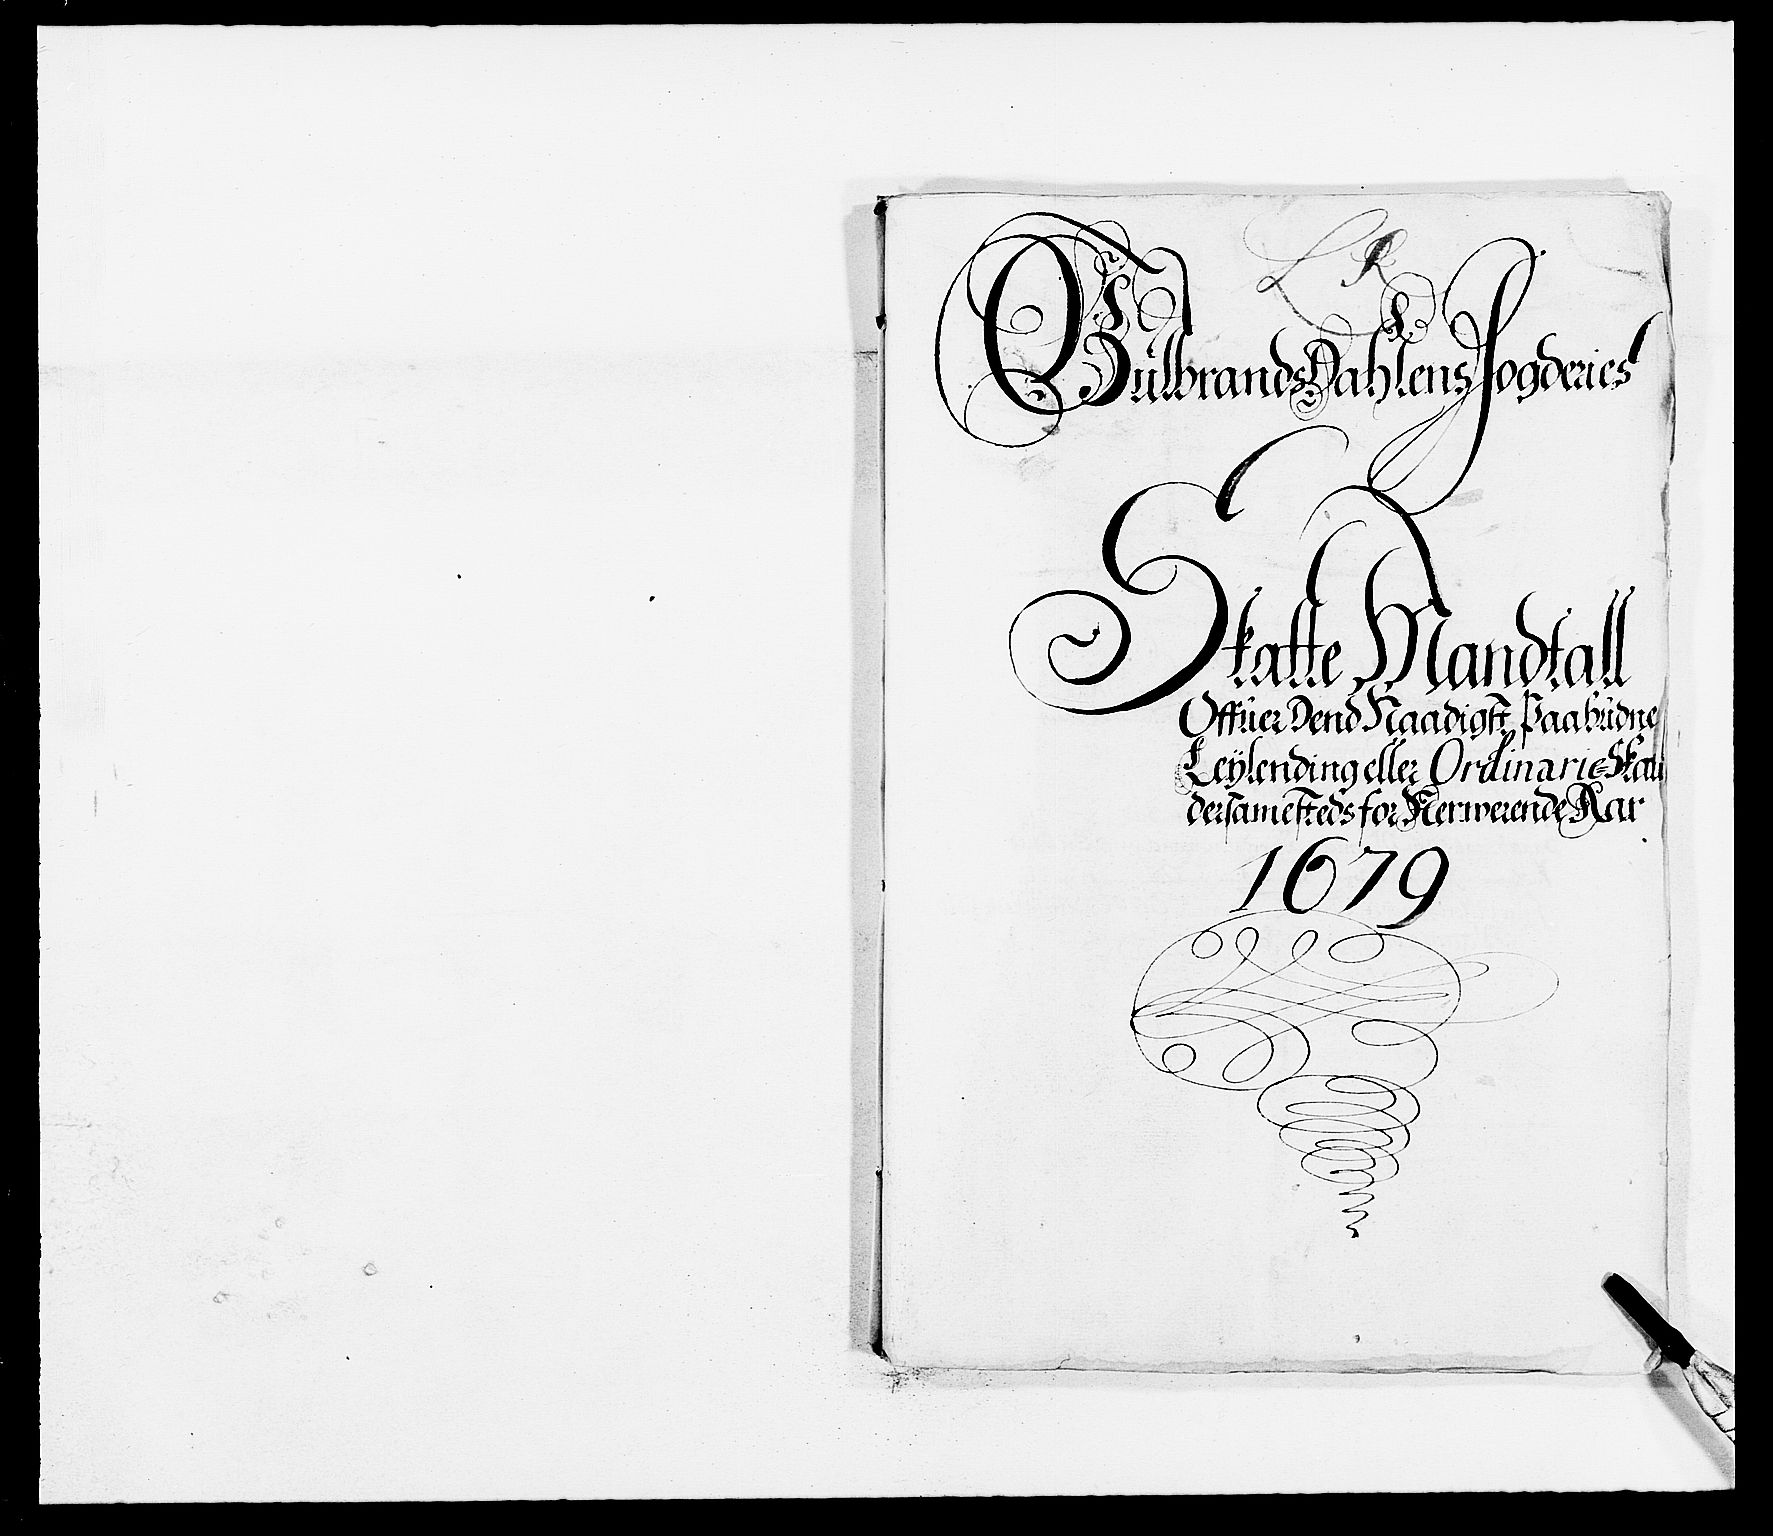 L R
GülbrandsDahlens Fogderies
Skatte Mandtall
Offüer Dend Naadigst Paabüdne
Leÿlending eller Ordinarie Skatt
dersamesteds for Nerwerende Aar
1679